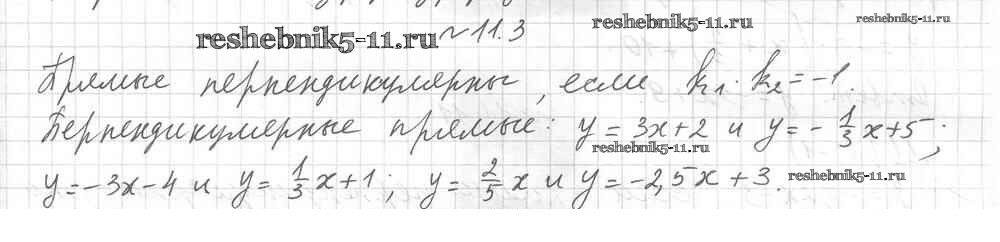 reshebnik5-11.ru ~11.3 reshebnik5-11.ru reshebnik5-11.ru
Прямые перпендикулярны, если k₁ · k₂ = -1.
Перпендикулярные прямые: y = 3x + 2 и y = - 1/3 x + 5;
reshebnik5-11.ru
y = -3x - 4 и y = 1/3 x + 1; y = 2/5 x и y = -2,5x + 3. reshebnik5-11.ru